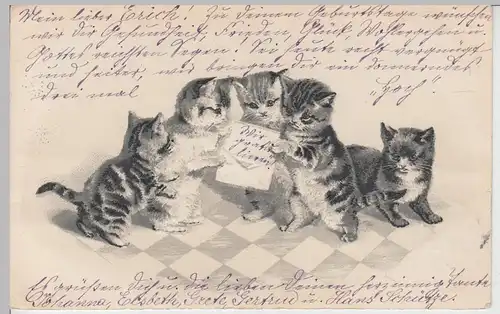 Mein lieber Erich. Zu Deinem Geburtstage wünschen
wir Dir Gesundheit, Frieden, Glück, Wohlergehen u.
Gottes reichsten Segen! Sei heute recht vergnügt
und heiter, wir bringen dir ein donnerndes
drei mal „Hoch!"
Wir
gratu
lieren
Es grüßen Dich u. die lieben Deinen herzinnig Tante
Johanna, Elsbeth, Grete, Gertrud u. Hans Schütze.